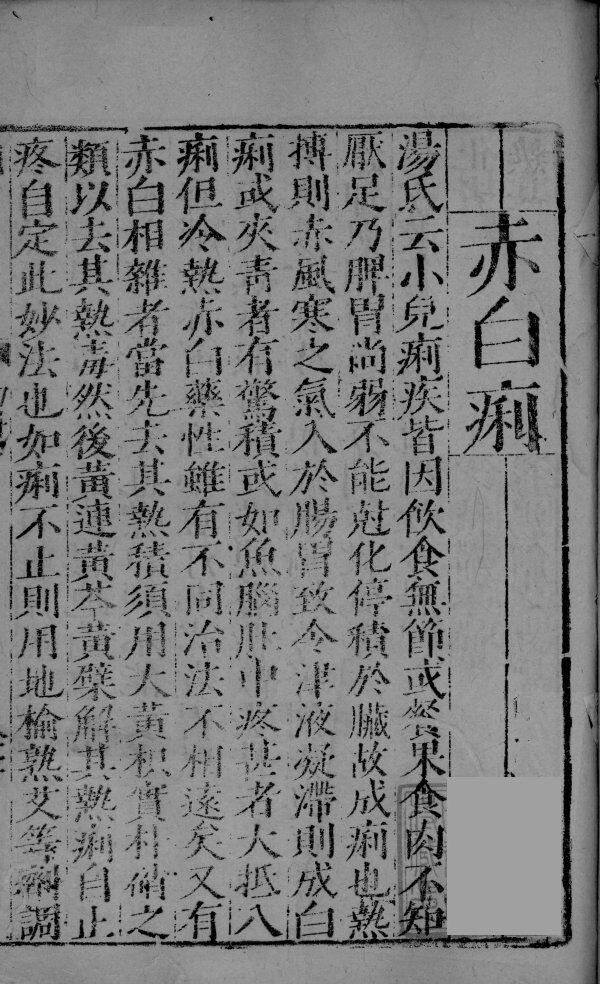 赤白痢
湯氏云小兒痢疾皆因飲食無節或餐果食肉不知
厭足乃脾胃尚弱不能尅化停積於臟故成痢也熱
搏則赤風寒之氣入於腸胃致令津液凝滯則成白
痢或夾青者有驚積或如魚腦肚中疼甚者大抵八
痢但冷熱赤白藥性雖有不同治法不相遠矣又有
赤白相雜者當先去其熱積須用大黃枳實朴硝之
類以去其熱毒然後黃連黃芩黃蘗解其熱痢自止
疼自定此妙法也如痢不止則用地榆熟艾等劑調